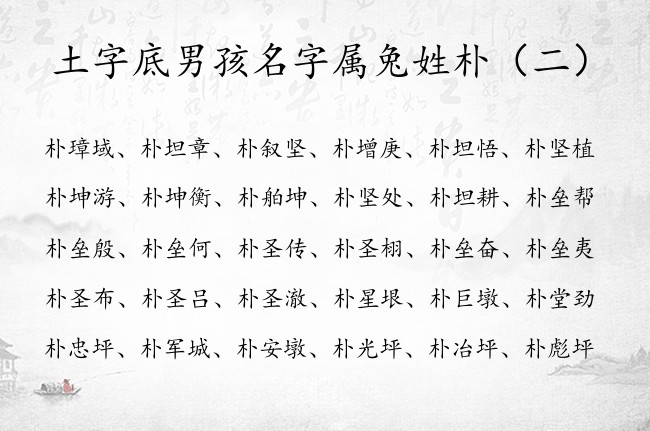 土字底男孩名字属兔姓朴（二）
朴璋域、朴坦章、朴叙坚、朴增庚、朴坦悟、朴坚植
朴坤游、朴坤衡、朴舶坤、朴坚处、朴坦耕、朴垒帮
朴垒殷、朴垒何、朴圣传、朴圣栩、朴垒奋、朴垒夷
朴圣布、朴圣吕、朴圣澈、朴星垠、朴巨墩、朴堂劲
朴忠坪、朴军城、朴安墩、朴光坪、朴冶坪、朴彪坪